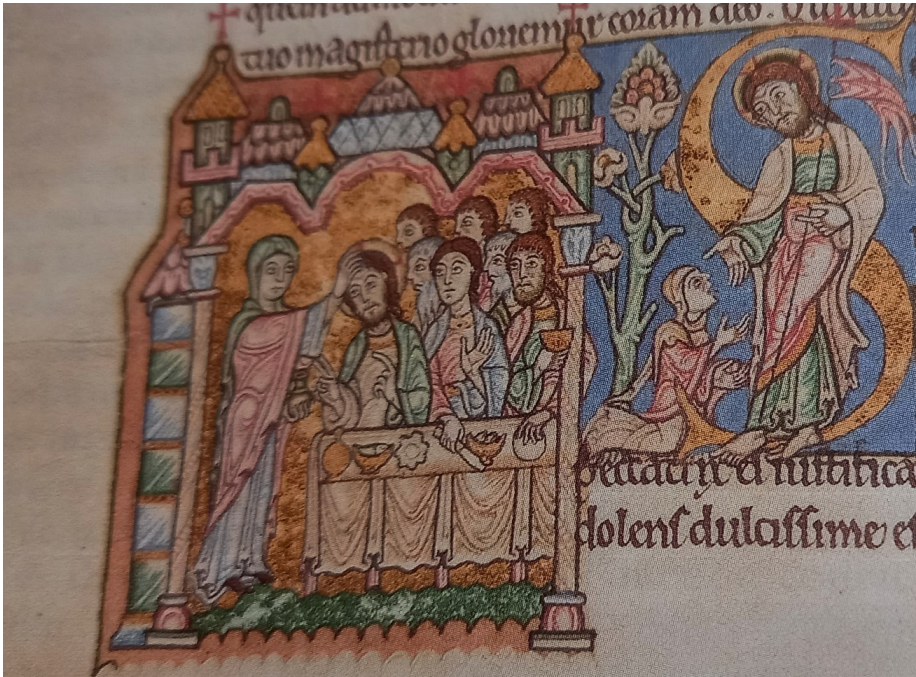 tuo magisterio gloriemur coram deo.
S
peccatrix et iustifica
dolens dulcissime